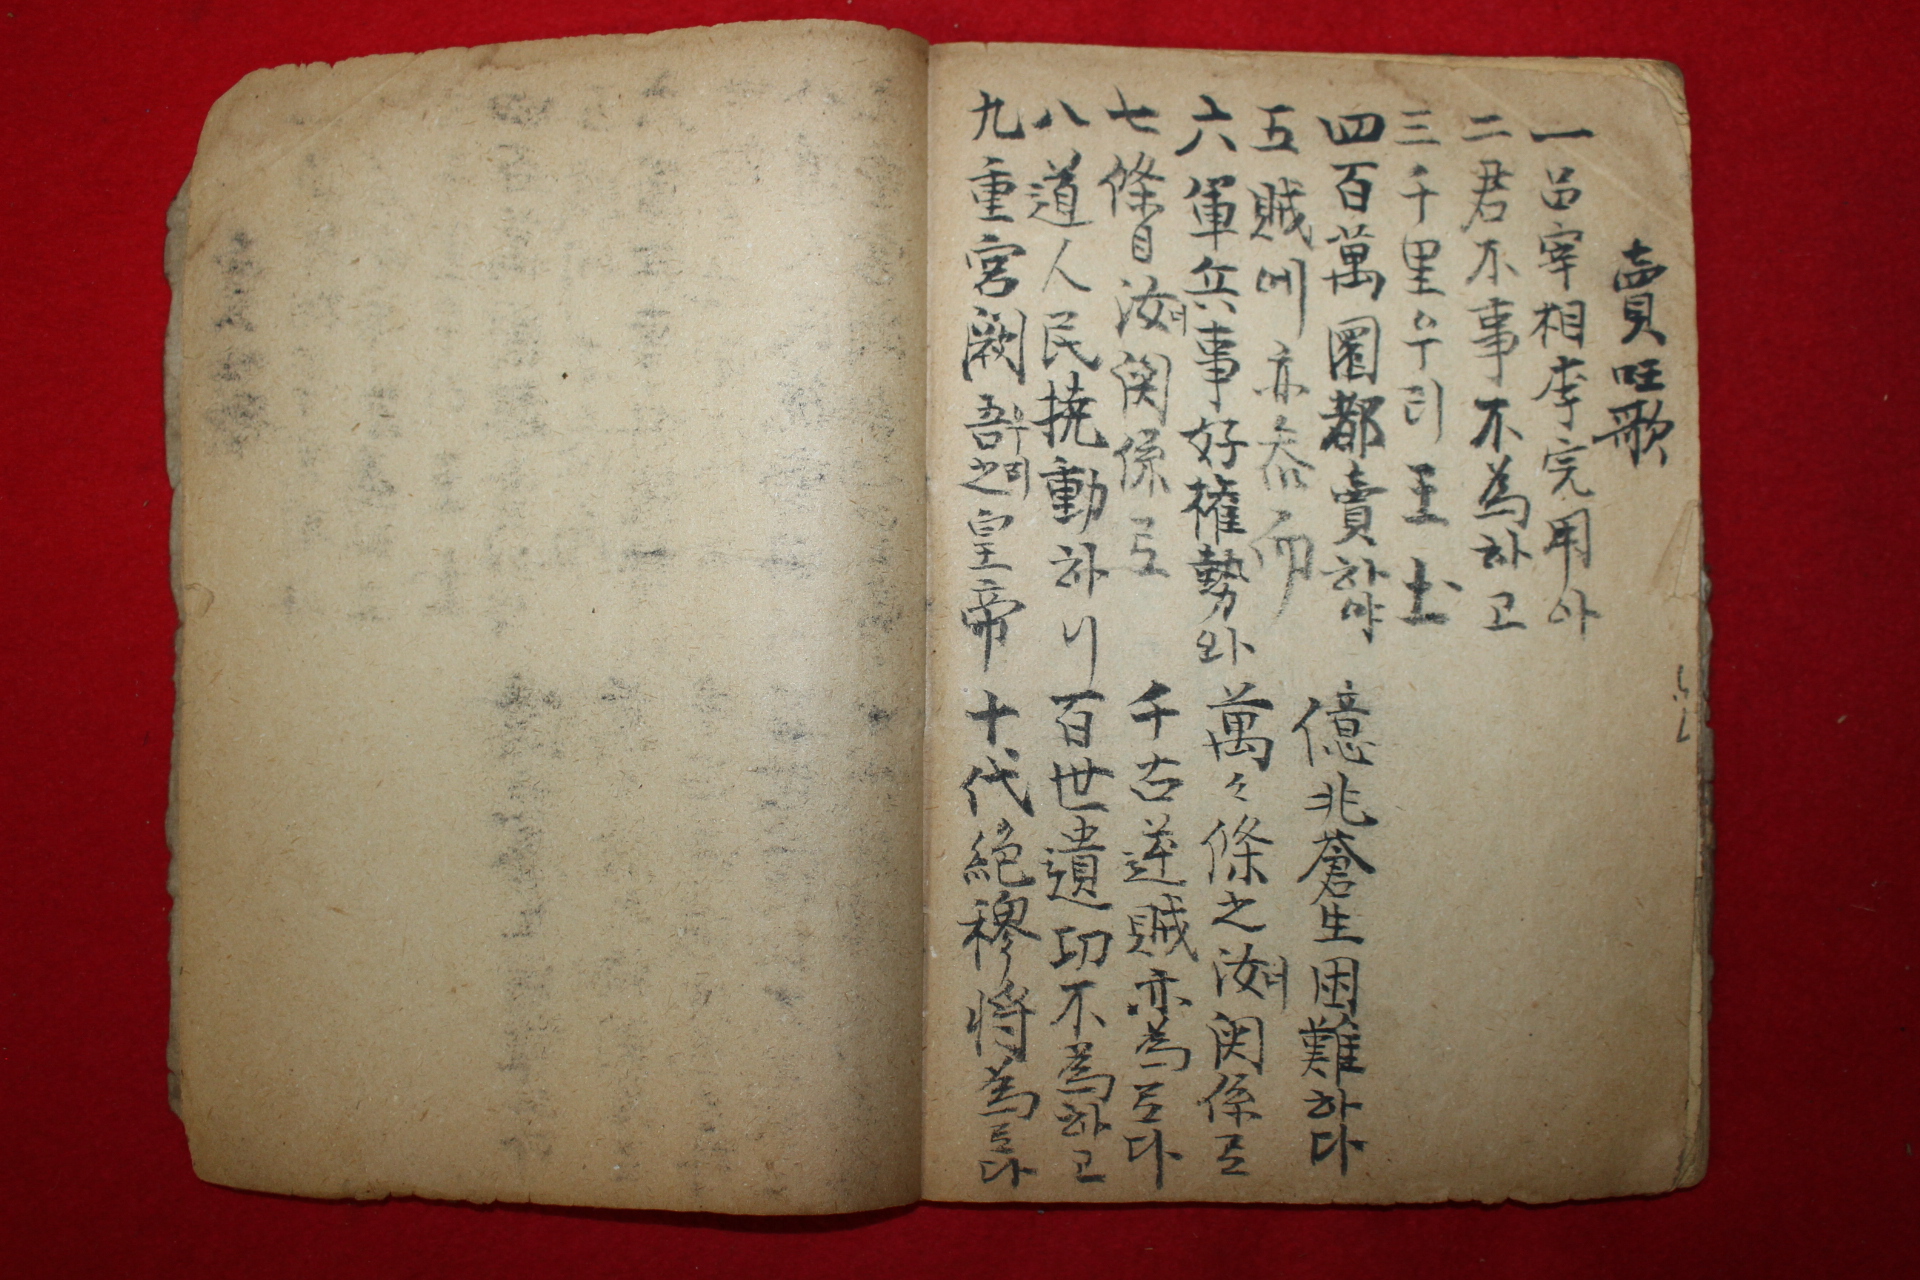 賣旺歌
一呂宰相李完用아
二君不事不為하고
三千里우리王土
四百萬圜都賣하야 億兆蒼生困難하다
五賊에亦叅而
六軍兵事好權勢와 萬々條之汝関係로
七條目汝関係로 千古逆賊亦為로다
八道人民撓動하니 百世遺功不為하고
九重宮闕吾之우리皇帝 十代絶穆將為로다